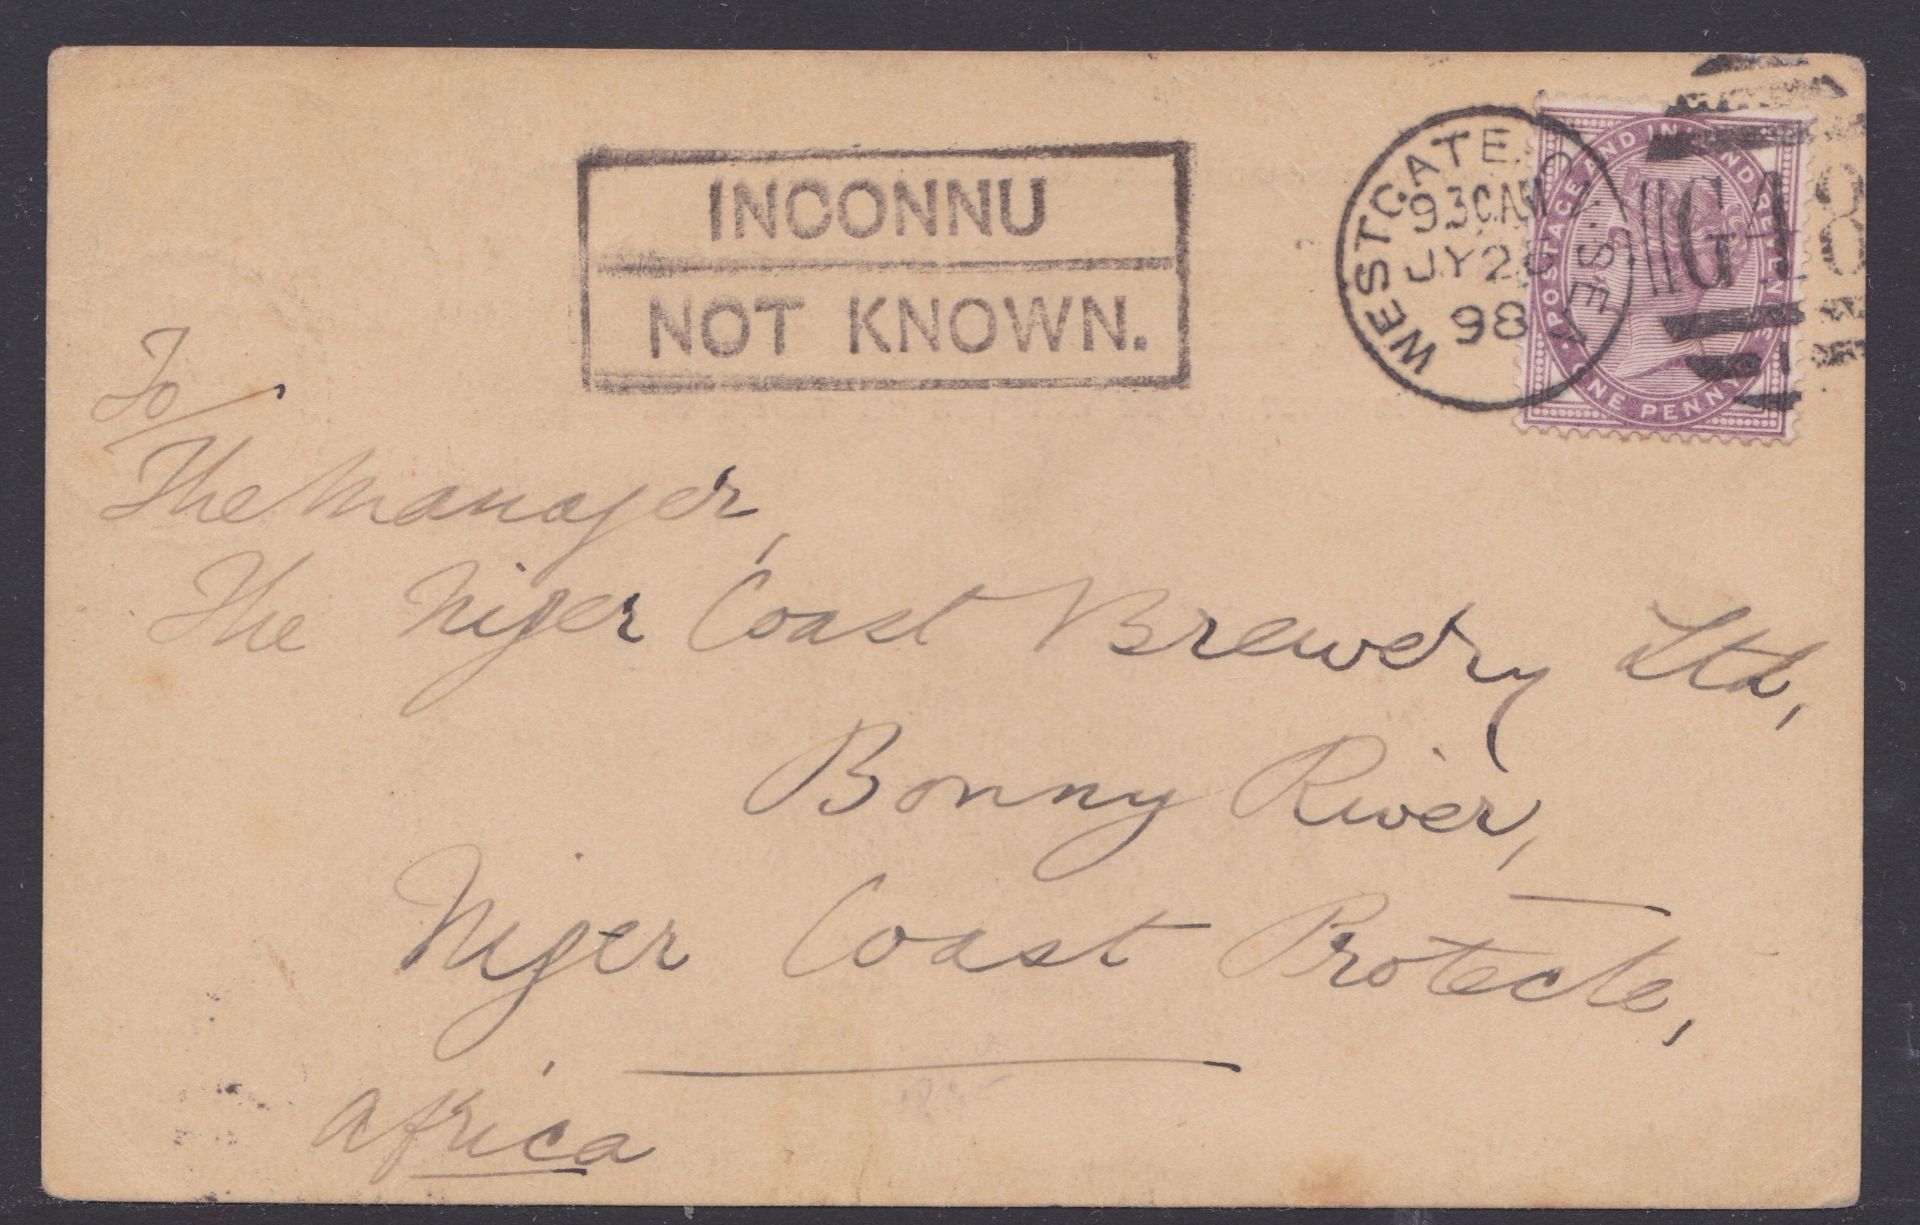 INCONNU
NOT KNOWN.
WESTGATE.
9 30 AM
JY 26
98
GA8
POSTAGE AND INLAND REVENUE
ONE PENNY
To/
The Manager,
The Niger Coast Brewery Ltd,
Bonny River,
Niger Coast Protecte,
Africa